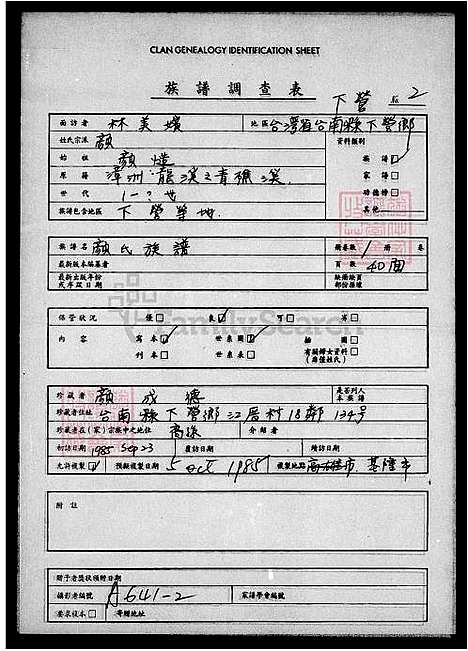 CLAN GENEALOGY IDENTIFICATION SHEET
族譜調查表
下營 2
面訪者 林美嬡 地區 台灣省台南縣下營鄉
姓氏宗派 顏 資料類別
始祖 顏 族譜
原籍 漳州龍溪之青礁 家譜
世代 1-?世 功德榜
族譜包含地區 下營等地 其他
族譜名 顏氏族譜 1 冊 卷
最新版本編著者 頁數 40面
最新出版年份
或序跋日期
保管狀況 優 良 可 劣
內容 寫本 世系圖 插圖
刊本 世系表 有關婦女資料
珍藏者 顏成德 是否列入本族譜
珍藏者住址 台南縣下營鄉 村18鄰134号
珍藏者在(家)宗族中之地位 介紹者
初訪日期 1985 Sep 23 覆訪日期 續訪日期
允許複製 預擬複製日期 5 Oct 1985 複製地點 高雄市 基隆市
附註
贈予者獎狀領贈日期
攝影者編號 A641-2 家譜學會編號
要求複本 寄贈地址
FamilySearch